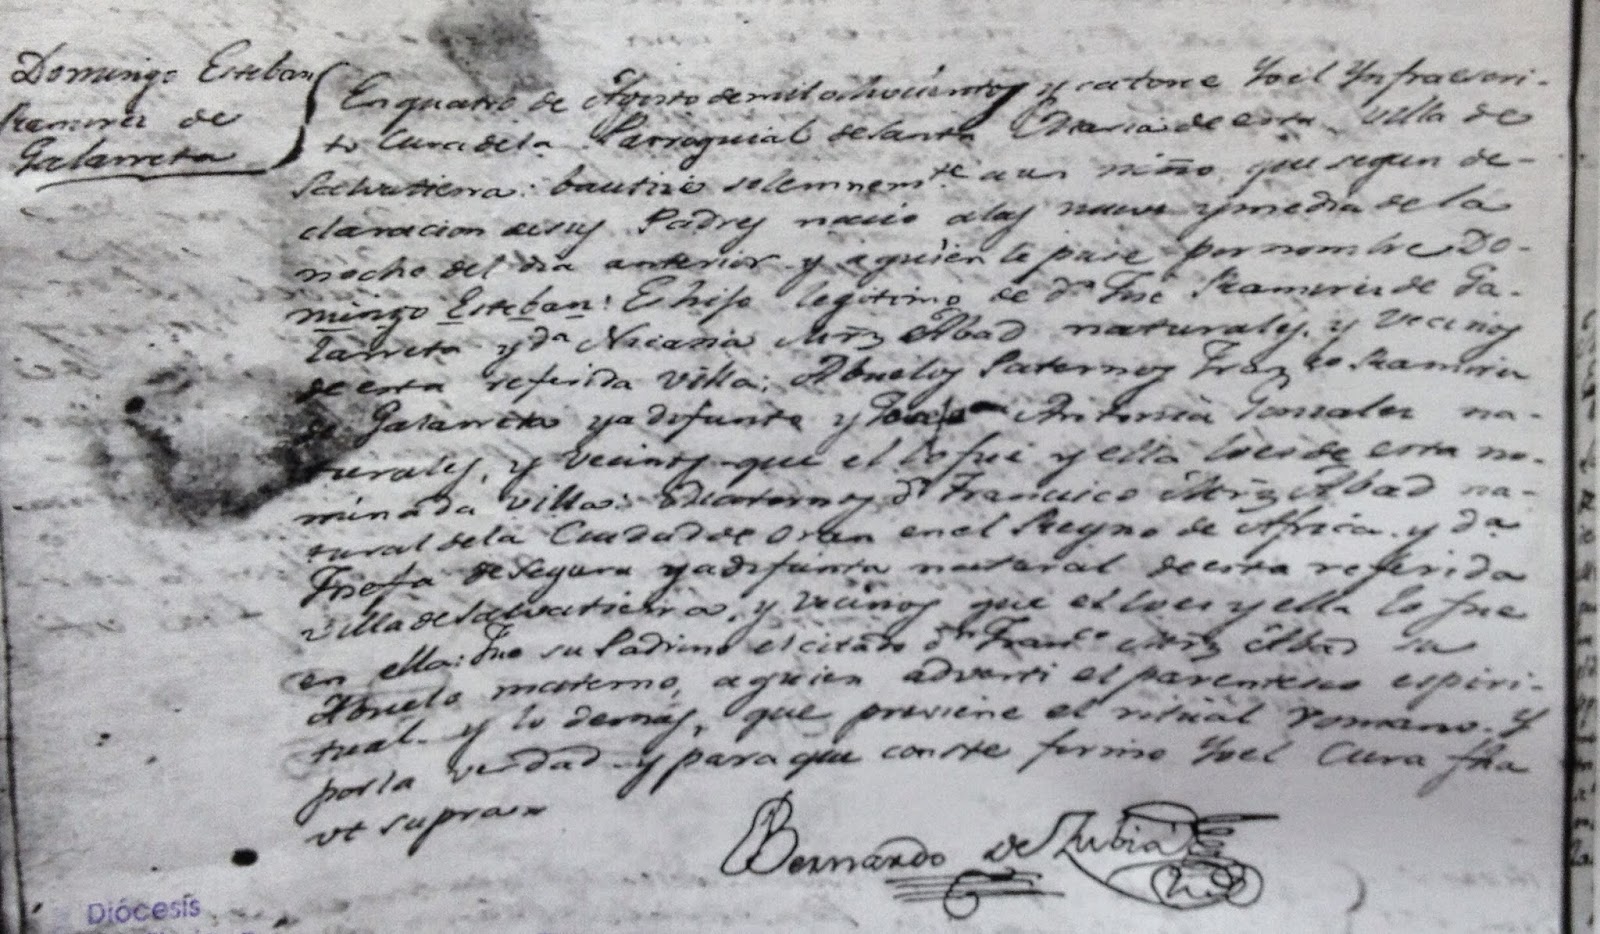 Domingo Esteban
Ramirez de
Galarreta
En quatro de Agosto de mil ochocientos y catorce Yo el Ynfraescri-
to Cura de la Parroquial de Santa Maria de esta villa de
Salvatierra: bautize solemnemte a un niño, que segun de-
claracion de sus Padres nacio a las nueve y media de la
noche del dia anterior y a quien le puse por nombre Do-
mingo Esteban: Es hijo legitimo de dn Jose Ramirez de Ga-
larreta y da Nicasia Mrnz Abad naturales, y vecinos
de esta referida villa: Abuelos Paternos Franco Ramirez
de Galarreta ya difunto y Antonia Gonzalez na-
turales, y vecinos que el lo fue y ella lo es de esta no-
minada villa: Maternos dn Francisco Mrnz Abad na-
tural de la Ciudad de Oran en el Reyno de Africa y da
Josefa de Segura ya difunta natural de esta referida
villa de Salvatierra, y vecinos que el lo es y ella lo fue
en ella: Fue su Padrino el citado dn Franco Mrnz Abad su
Abuelo materno, a quien adverti el parentesco espiri-
tual y lo demas, que previene el ritual romano. Y
por la verdad y para que conste firmo Yo el Cura fha
ut supra
Bernardo de Zubia
Diócesis